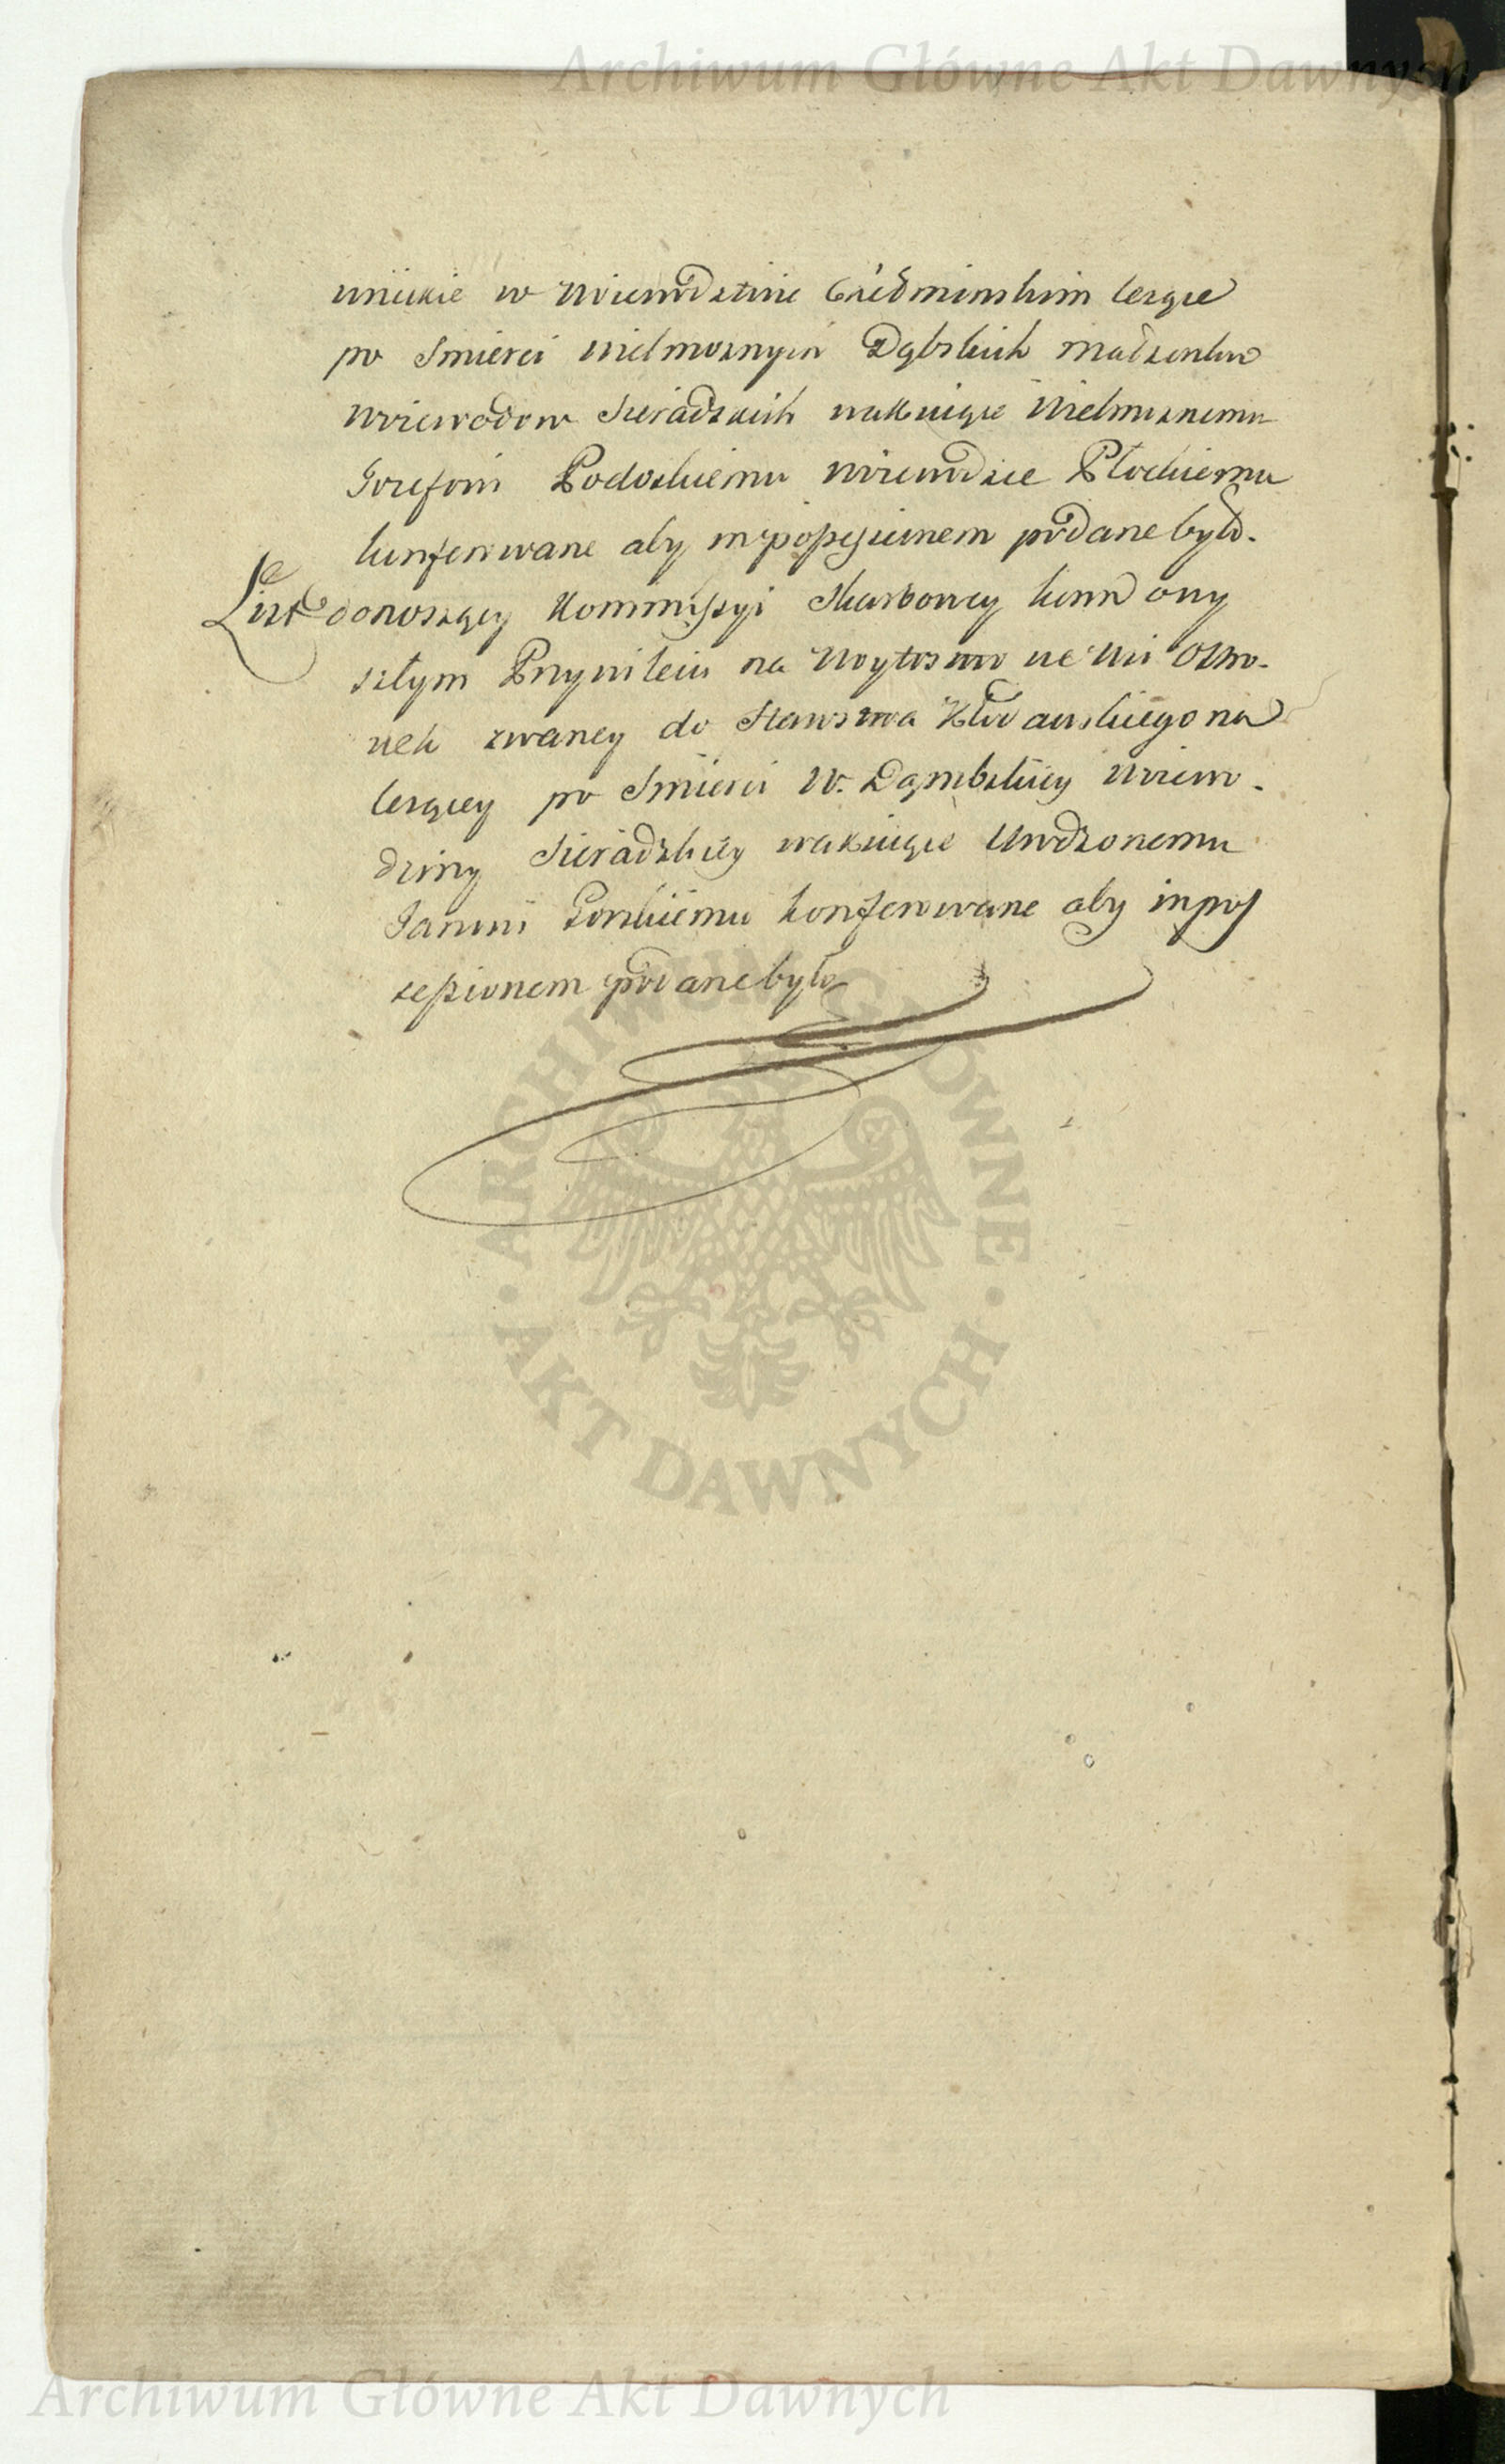 Archiwum Główne Akt Dawnych
w Woiewodztwie leżące
po Smierci Wielmoznych Dąbskich Małzonkow
Woiewodow Sieradzkich wakuiące Wielmoznemu
Jozefowi Podoskiemu Woiewodzie Płockiemu
konferowane aby in possessionem podane było.
List donoszący Kommissyi Skarbowey
Przywileiu na Woytostwo we Wsi
zwaney do Starostwa Kłodawskiego na
leżącey po Smierci W. Dąmbskiey Woiewo-
dziny Sieradzkiey wakuiące Urodzonemu
Janowi konferowane aby in pos
sessionem podane było
ARCHIWUM GŁÓWNE
AKT DAWNYCH
Archiwum Główne Akt Dawnych